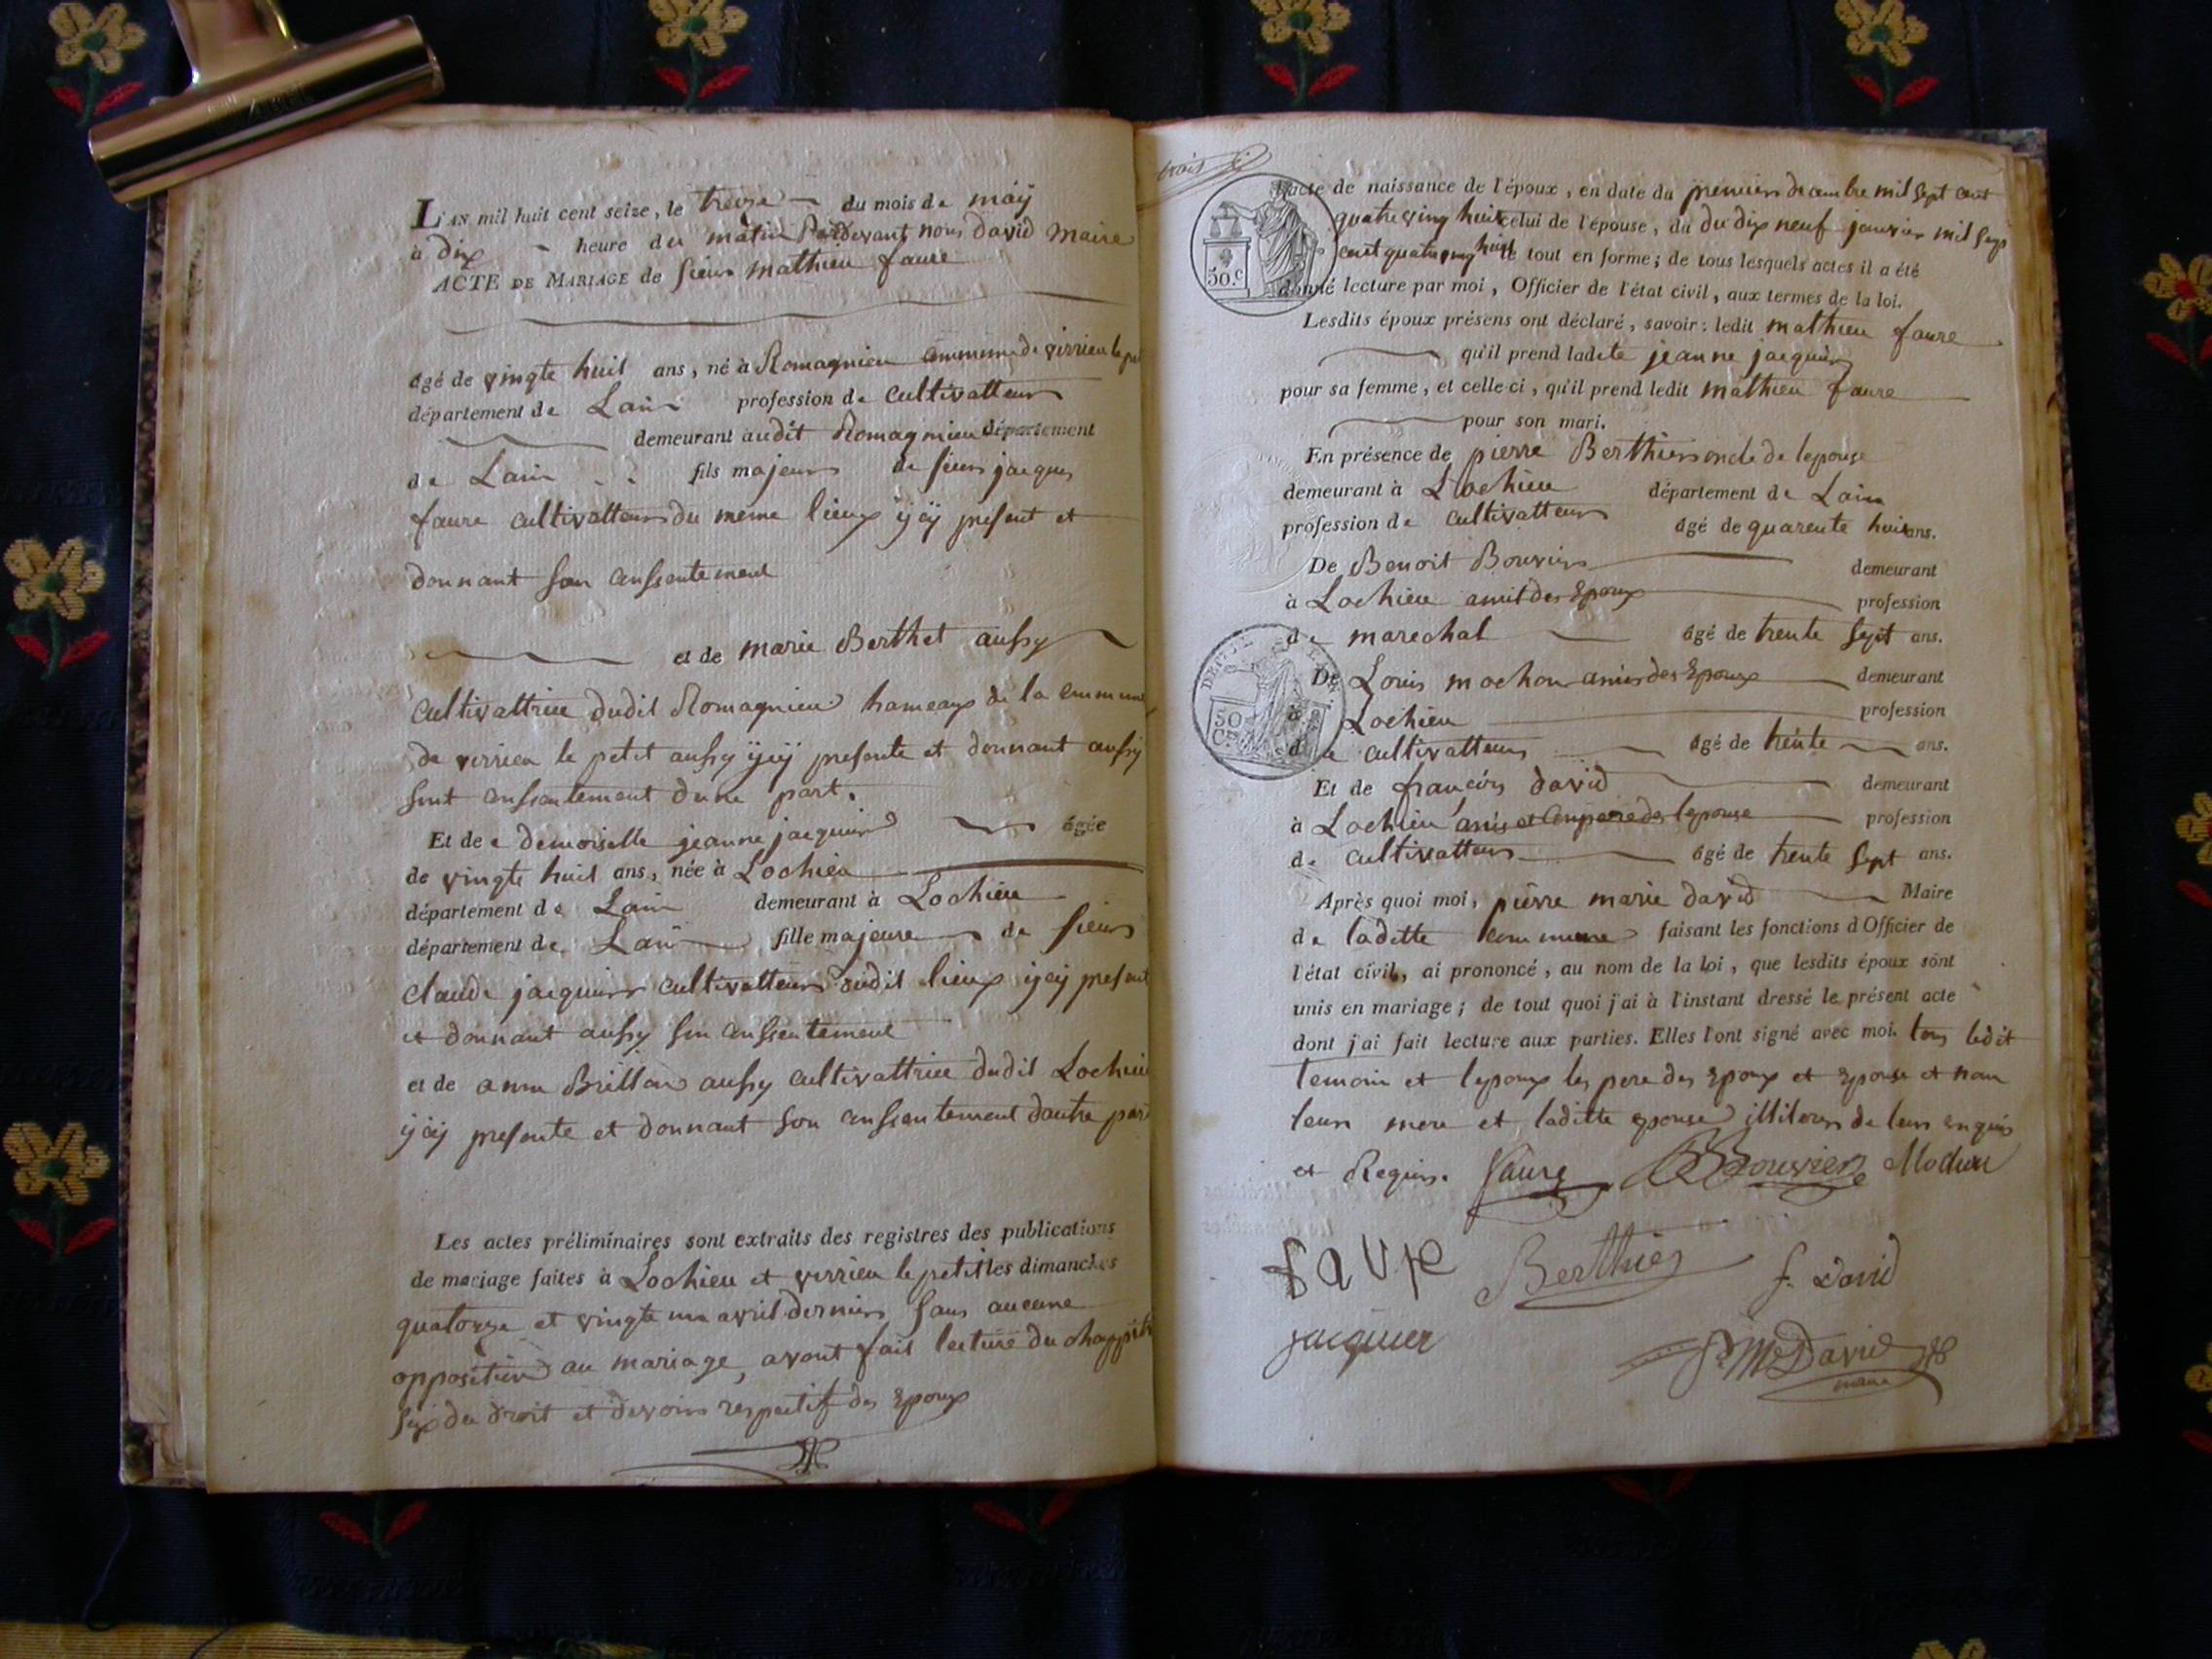 L'AN mil huit cent seize, le treize du mois de maÿ
à dix heure du matin Pardevant nous david maire
ACTE DE MARIAGE de sieur mathieu faure
âgé de vingte huit ans, né à Romagnieu commune de virrieu le
département de Lain profession de cultivatteur
demeurant audit Romagnieu département
de Lain fils majeur de sieur jacques
faure cultivatteur du meme lieux ÿcÿ present et
donnant son consentement
et de marie Berthet aussy
cultivattrice dudit Romagnieu hameaux de la commune
de virrieu le petit aussy ÿcÿ presente et donnant aussy
sont consentement dune part.
Et de e demoiselle jeanne jacquier âgée
de vingte huit ans, née à Lochieu
département de Lain demeurant à Lochieu
département de Lain fille majeure de sieur
claude jacquier cultivatteur dudit lieux ÿcÿ present
et donnant aussy son consentement
et de anne Brillon aussy cultivattrice dudit Lochieu
ÿcÿ presente et donnant son consentement dautre part
Les actes préliminaires sont extraits des registres des publications
de mariage faites à Lochieu et virrieu le petit les dimanches
quatorze et vingte un avril dernier sans aucune
opposition au mariage, avont fait lecture du chappitre
six du droit et devoirs respectif des Epoux
trois
l'acte de naissance de l'époux, en date du premier decembre mil sept cent
quatre ving huit celui de l'épouse, du du dix neuf janvier mil sept
cent quatre ving huit le tout en forme; de tous lesquels actes il a été
donné lecture par moi, Officier de l'état civil, aux termes de la loi.
Lesdits époux présens ont déclaré, savoir: ledit mathieu faure
qu'il prend ladete jeanne jacquier
pour sa femme, et celle-ci, qu'il prend ledit mathieu faure
pour son mari.
En présence de pierre Berthier oncle de lepouse
demeurant à Lochieu département de Lain
profession de cultivatteur âgé de quarente huit ans.
De Benoit Bouvier demeurant
à Lochieu amit des Epoux profession
de marechal âgé de trente sept ans.
De Louis mochon amis des Epoux demeurant
à Lochieu profession
de cultivatteur âgé de trente ans.
Et de françois david demeurant
à Lochieu amis et compere de lepouse profession
de cultivatteur âgé de trente sept ans.
Après quoi moi, pierre marie david Maire
de laditte commune faisant les fonctions d'Officier de
l'état civil, ai prononcé, au nom de la loi, que lesdits époux sont
unis en mariage; de tout quoi j'ai à l'instant dressé le présent acte
dont j'ai fait lecture aux parties. Elles l'ont signé avec moi. tous ledit
temoin et lepoux les pere des epoux et epouse et non
leur mere et laditte epouse illiterer de leur enquis
et Requis. faure BBouvier Mochon
faure Berthier f. David
jacquier P M David
maire
50.c
50
C.